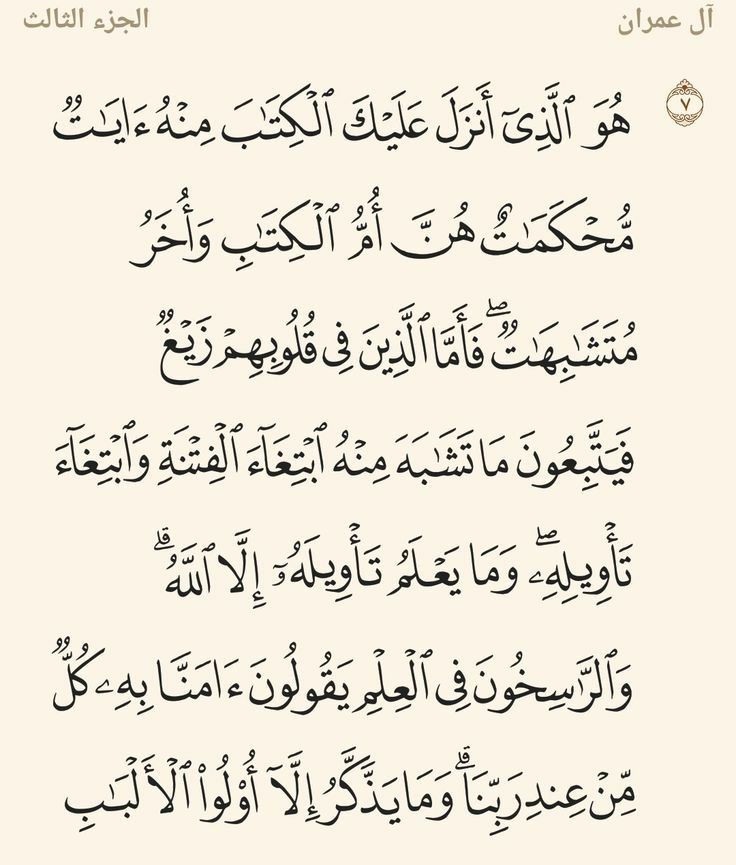 آل عمران
الجزء الثالث
٧ هُوَ ٱلَّذِىٓ أَنزَلَ عَلَيْكَ ٱلْكِتَـٰبَ مِنْهُ ءَايَـٰتٌ
مُّحْكَمَـٰتٌ هُنَّ أُمُّ ٱلْكِتَـٰبِ وَأُخَرُ
مُتَشَـٰبِهَـٰتٌ ۖ فَأَمَّا ٱلَّذِينَ فِى قُلُوبِهِمْ زَيْغٌ
فَيَتَّبِعُونَ مَا تَشَـٰبَهَ مِنْهُ ٱبْتِغَآءَ ٱلْفِتْنَةِ وَٱبْتِغَآءَ
تَأْوِيلِهِۦ ۖ وَمَا يَعْلَمُ تَأْوِيلَهُۥٓ إِلَّا ٱللَّهُ ۗ
وَٱلرَّٰسِخُونَ فِى ٱلْعِلْمِ يَقُولُونَ ءَامَنَّا بِهِۦ كُلٌّ
مِّنْ عِندِ رَبِّنَا ۗ وَمَا يَذَّكَّرُ إِلَّآ أُو۟لُوا۟ ٱلْأَلْبَـٰبِ